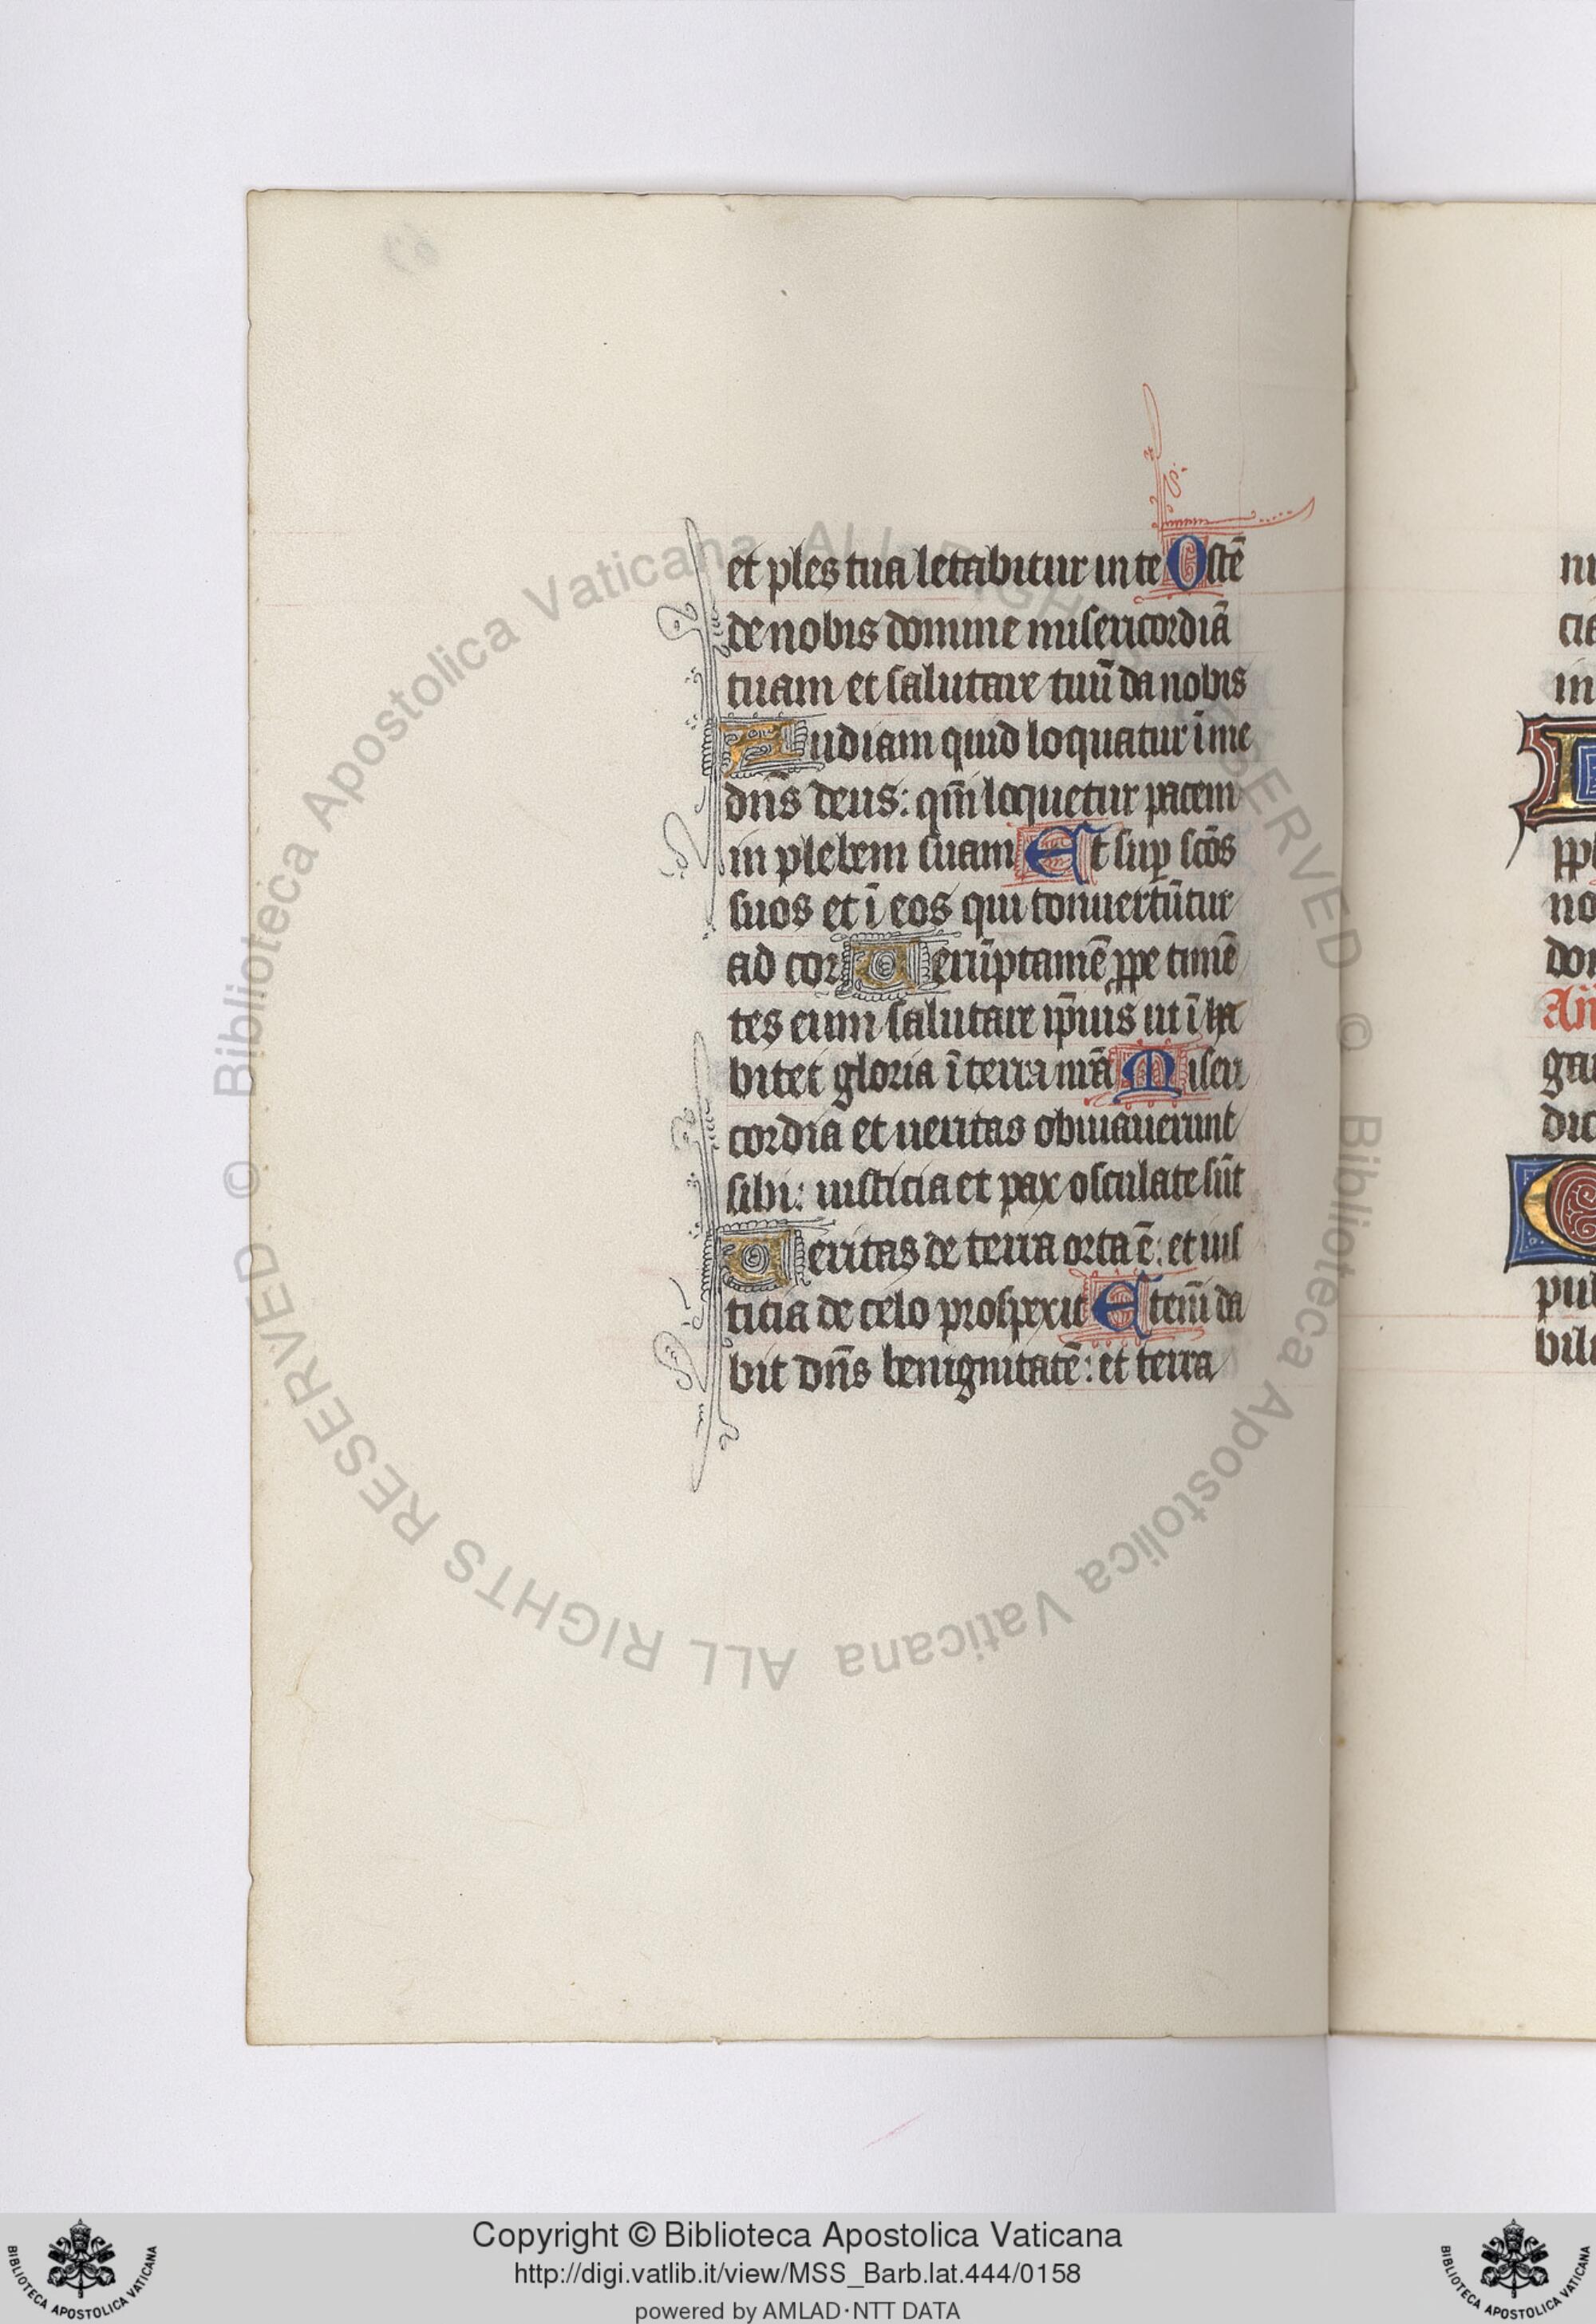 et ples tua letabitur in te Ostē
de nobis domine misericordiā
tuam et salutare tuū da nobis
Audiam quid loquatur ī me
dn̄s deus: qm̄ loquetur pacem
in plebem suam Et sup scōs
suos et ī eos qui conuertūtur
ad cor Uerūptamē ꝓpe timē
tes eum salutare ip̄ius ut ī ha
bitet gloria ī terra nrā Miseri
cordia et ueritas obuiauerunt
sibi: iusticia et pax osculate sūt
Ueritas de terra orta ē: et ius
ticia de celo prospexit Eteni̅ da
bit dn̄s benignitatē: et terra
cia
in
no
dic
© Biblioteca Apostolica Vaticana ALL RIGHTS RESERVED
© Biblioteca Apostolica Vaticana ALL RIGHTS RESERVED
Copyright © Biblioteca Apostolica Vaticana
http://digi.vatlib.it/view/MSS_Barb.lat.444/0158
powered by AMLAD·NTT DATA
BIBLIOTECA APOSTOLICA VATICANA
BIBLIOTECA APOSTOLICA VATICANA